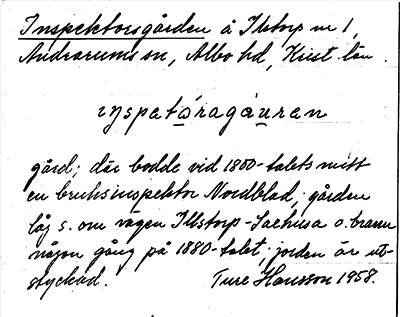 Inspektorsgården å Illstorp nr 1,
Andrarums sn, Albo hd, Krist. län.
inspatåragåuran
gård; där bodde vid 1800-talets mitt
en bruksinspektor Nordblad; gården
låg s. om vägen Illstorp-Laehusa o. brann
någon gång på 1880-talet; jorden är ut-
styckad. Ture Hansson 1958.